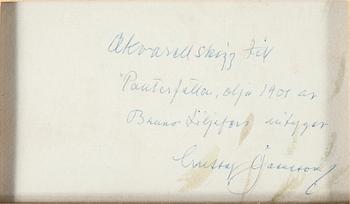 Akvarellskizz till
"Panterfälla, olja 1901 av
Bruno Liljefors intygar
Gustaf